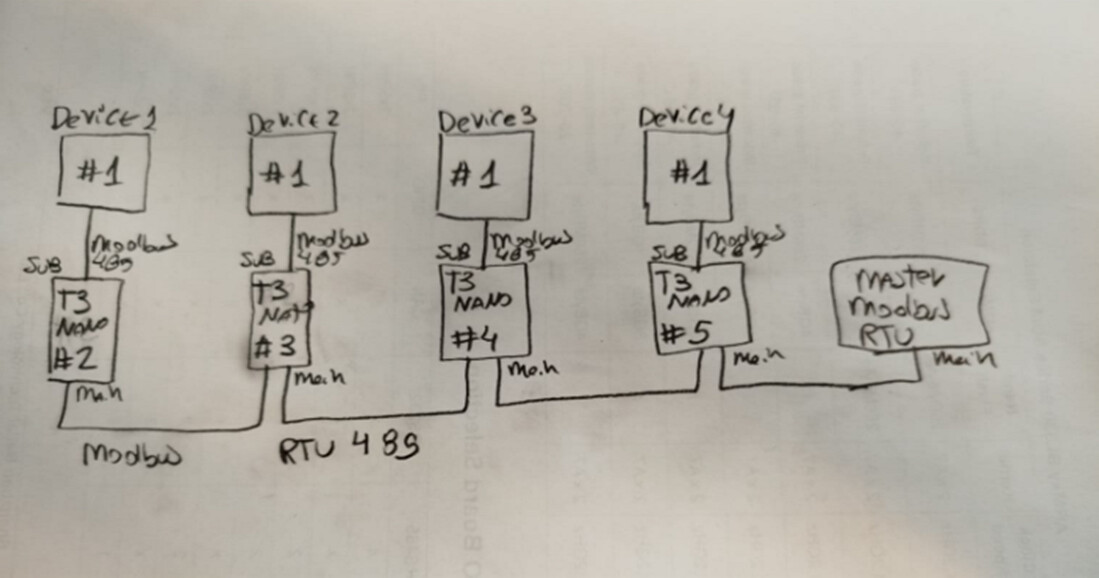 Device1
Device2
Device3
Device4
#1
#1
#1
#1
Modbus
485
Modbus
485
Modbus
485
Modbus
485
SUB
SUB
SUB
SUB
T3
NANO
#2
T3
NANO
#3
T3
NANO
#4
T3
NANO
#5
MASTER
Modbus
RTU
main
main
main
main
main
Modbus
RTU 485